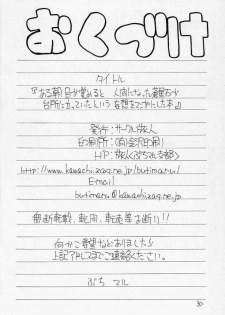 おくづけ
タイトル
『ある朝目が覚めると人間になった蓮石が
台所に立っていたという妄想をマンガにした本』
発行:サークル旅人
印刷所:(有)金沢印刷
HP:旅人ぷちまる部
http://www.kawachi.zaq.ne.jp/butimaru/
E-mail
butimaru@kawachi.zaq.ne.jp
無断転載、転用、転売等は断り!!
何かご要望などありましたら
上記アドレスまでご連絡ください。
ぷち マル
30